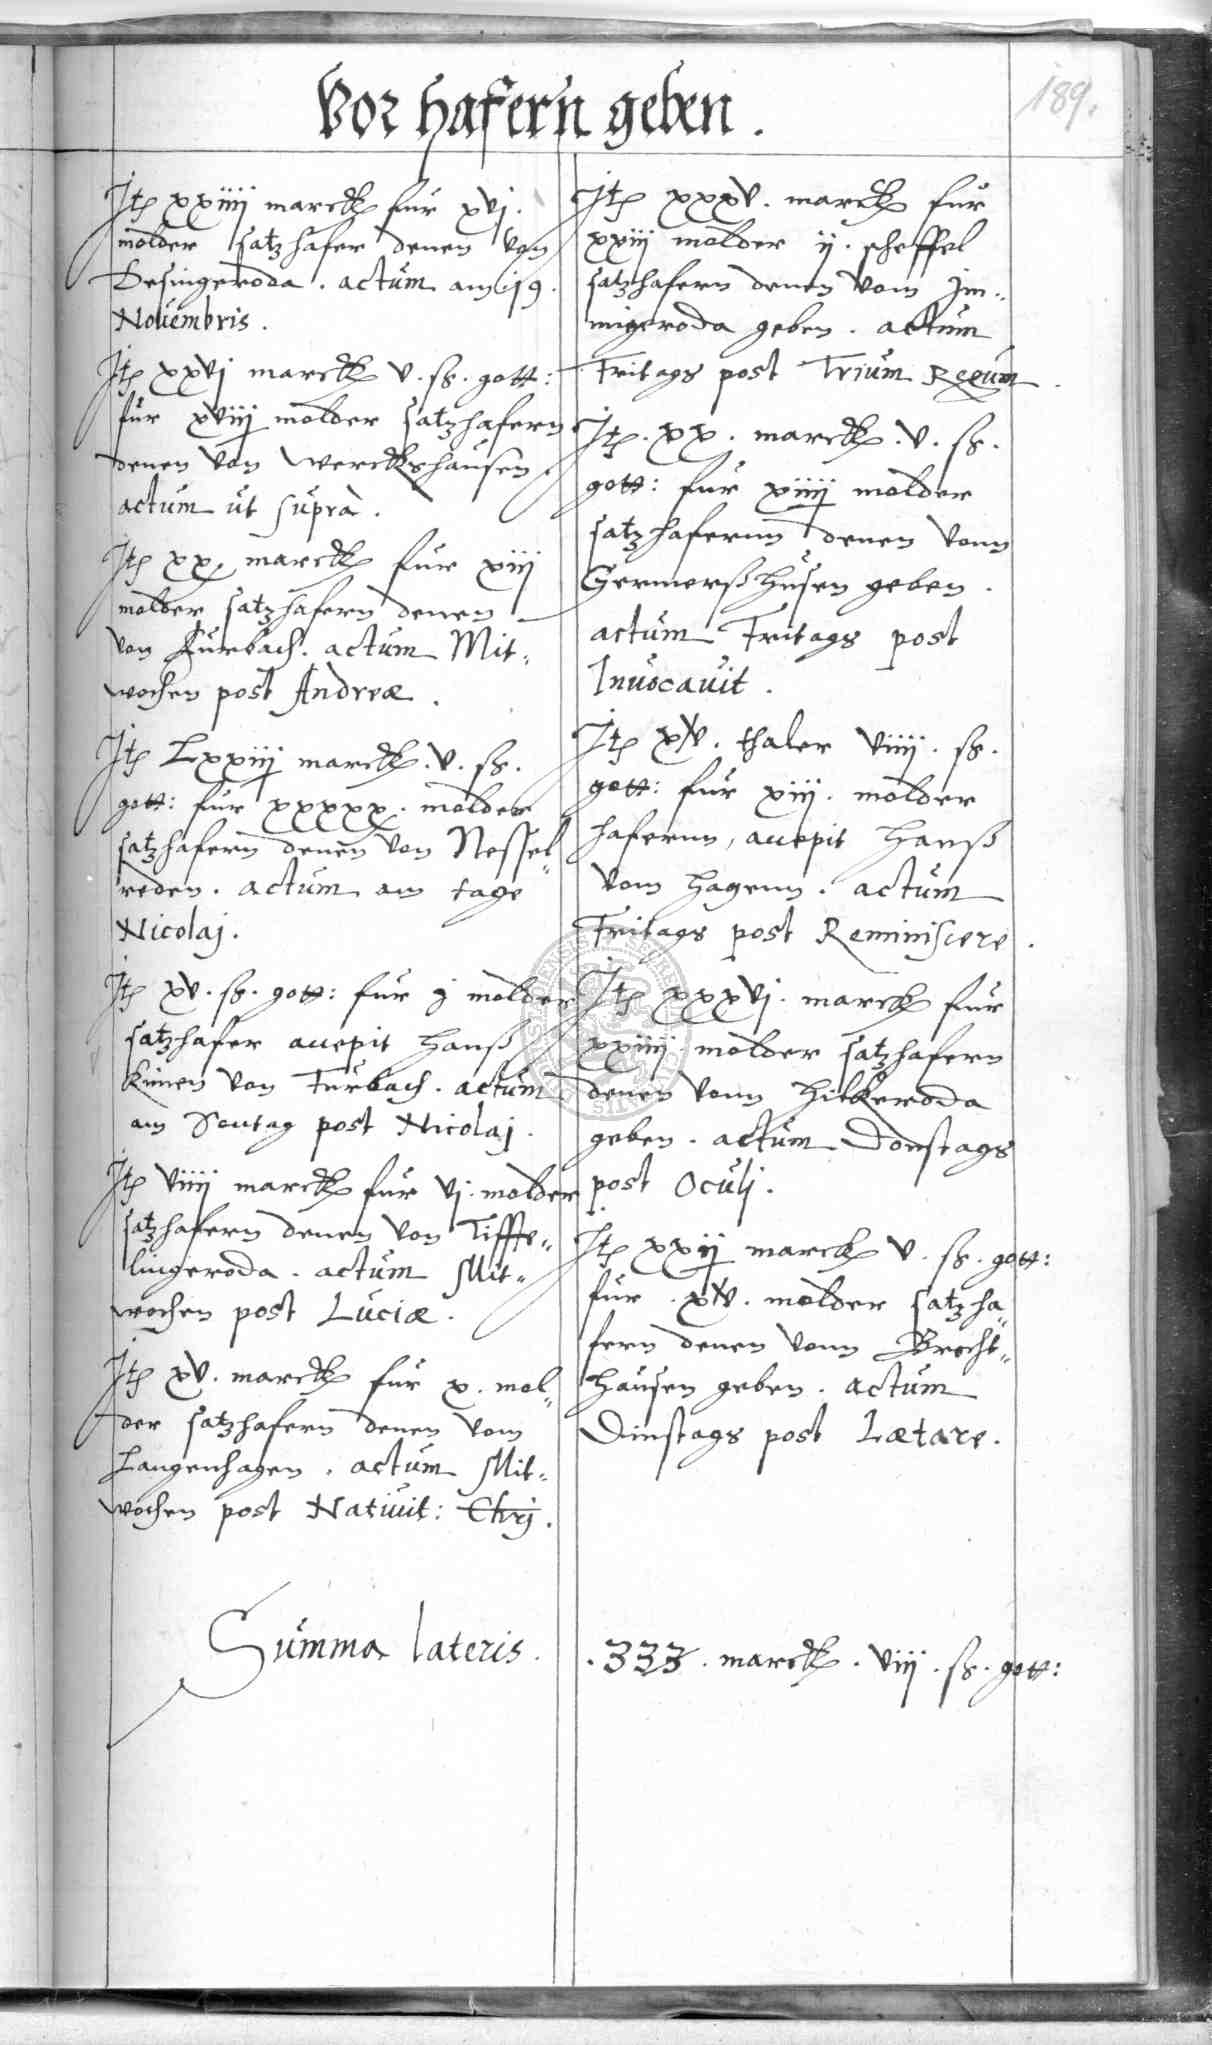 Vor hafern geben.
189.
Itȩ xxiiij marckȩ fur xvj.
molder satzhafer denen von
Desingeroda. actum am 19.
Nouembris.
Itȩ xxvj marckȩ v. ß. gott:
fur xviij molder satzhafern
denen von Werckshausen
actum ut supra.
Itȩ xx. marckȩ fur xiij
molder satzhafern denen
von Furbach. actum Mit„
wochen post Andreæ.
Itȩ Lxxiij marckȩ. v. ß.
gott: fur xxxxx. molder
satzhafern denen von Nessel„
reden. actum am tage
Nicolaj.
Itȩ xv. ß. gott: fur j molder
satzhafer accepit Hanß
Kunen von Furbach. actum
am Sontag post Nicolaj.
Itȩ viiij marckȩ fur vj. molder
satzhafern denen von Tiffte„
lingeroda. actum Mit„
wochen post Luciæ.
Itȩ xv. marckȩ fur x. mol„
der satzhafern denen vom
Langenhagen. actum Mit„
wochen post Natiuit: Chrj.
Itȩ xxxv. marckȩ fur
xxiij molder ij. scheffel
satzhafern denen vom Im„
migeroda geben. actum
Fritags post Trium Regum.
Itȩ. xx. marckȩ. v. ß.
gott: fur xiiij molder
satzhafernn denen vonn
Germerßhusen geben.
actum Fritags post
Inuocauit.
Itȩ xv. thaler viiij. ß.
gott: fur xiij. molder
hafernn, accepit Hanß
vom Hagenn. actum
Fritags post Reminiscere.
Itȩ xxxvj. marckȩ fur
xxiiij molder satzhafern
denen vonn Hilkeroda
geben. actum Donstags
post Oculj.
Itȩ xxij marckȩ v. ß. gott:
fur. xv. molder satzha„
fern denen vonn Brecht„
hausen geben. actum
Dinstags post Lætare.
Summa lateris. .333. marckȩ. viij. ß. gott: